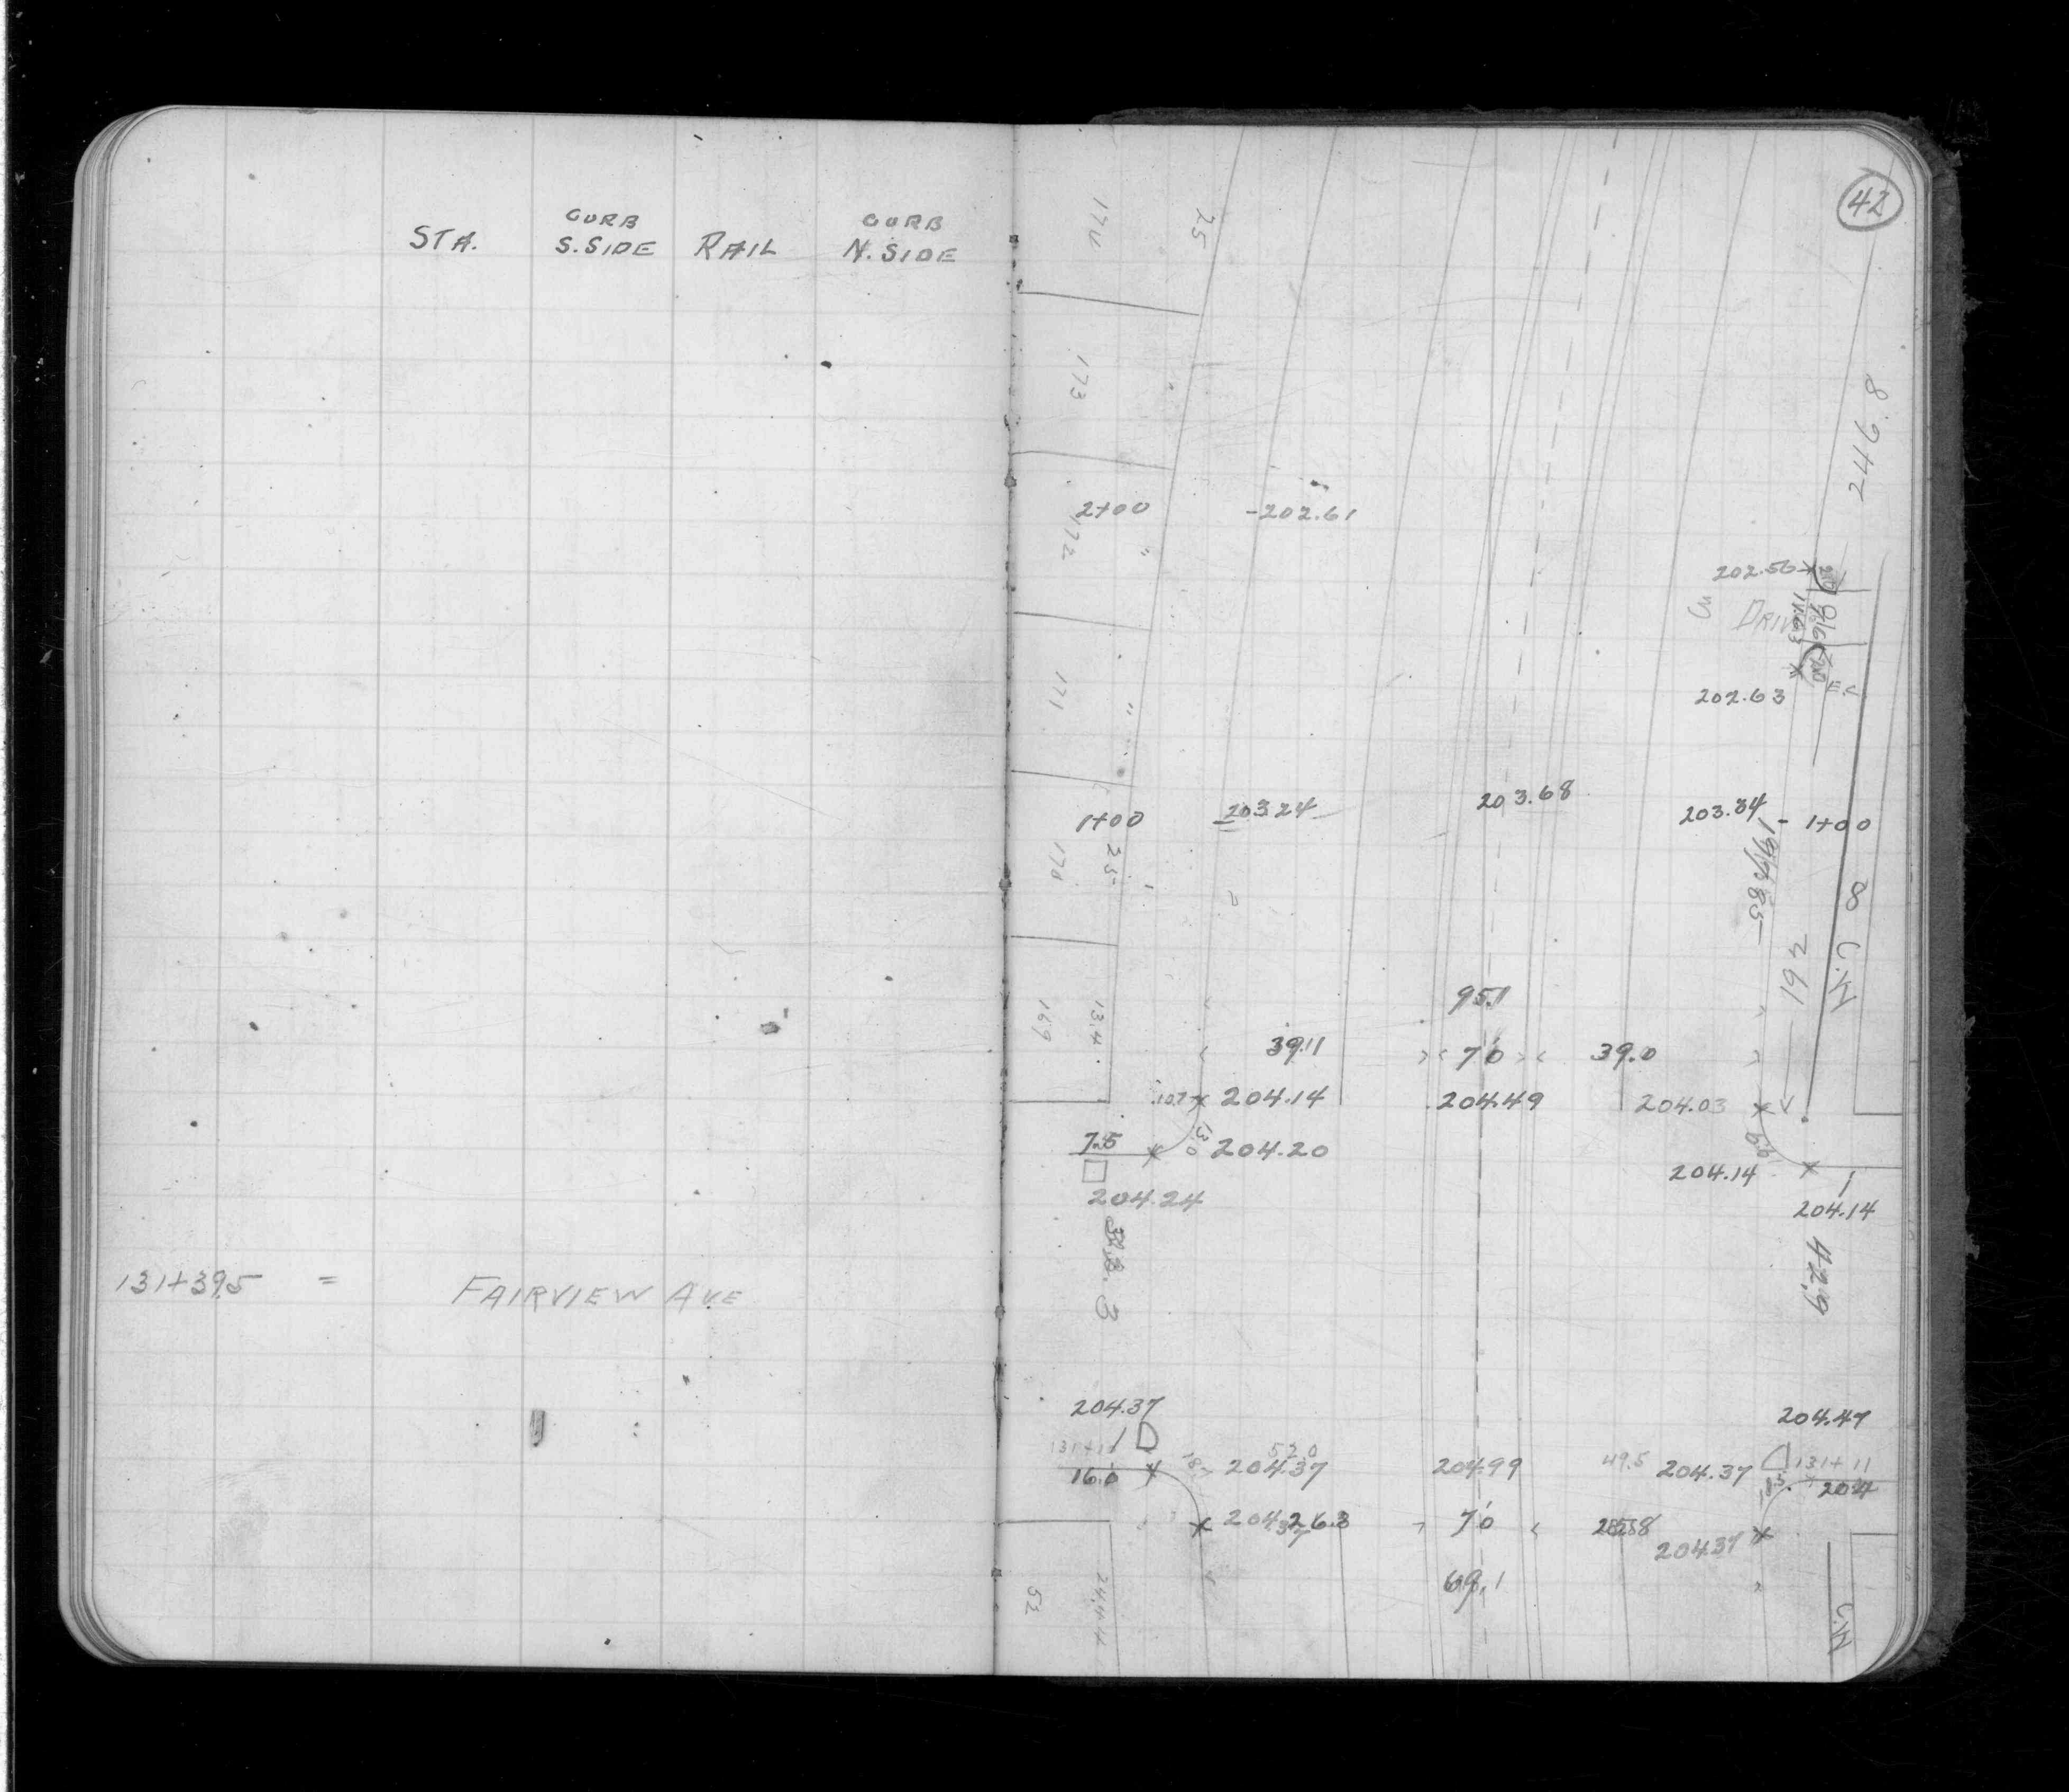 STA.
CURB
S. SIDE
RAIL
CURB
N. SIDE
131+39.5 = FAIRVIEW AVE
42
174
25
173
"
246.8
2+00
-202.61
172
"
202.56
DRIVE
171
"
202.63
E.C
1+00
203.24
203.68
203.84 - 1+00
170
25
8
192
C.N
95.1
169
13.4
39.11
7.0
39.0
10.7
204.14
204.49
204.03
7.5
13.0
204.20
204.14
204.24
204.14
42.9
204.37
204.47
131+11
16.0
52.0
204.37
204.99
49.5
204.37
131+11
204
26.3
7.0
204.37
69.1
52
24.44
C.N